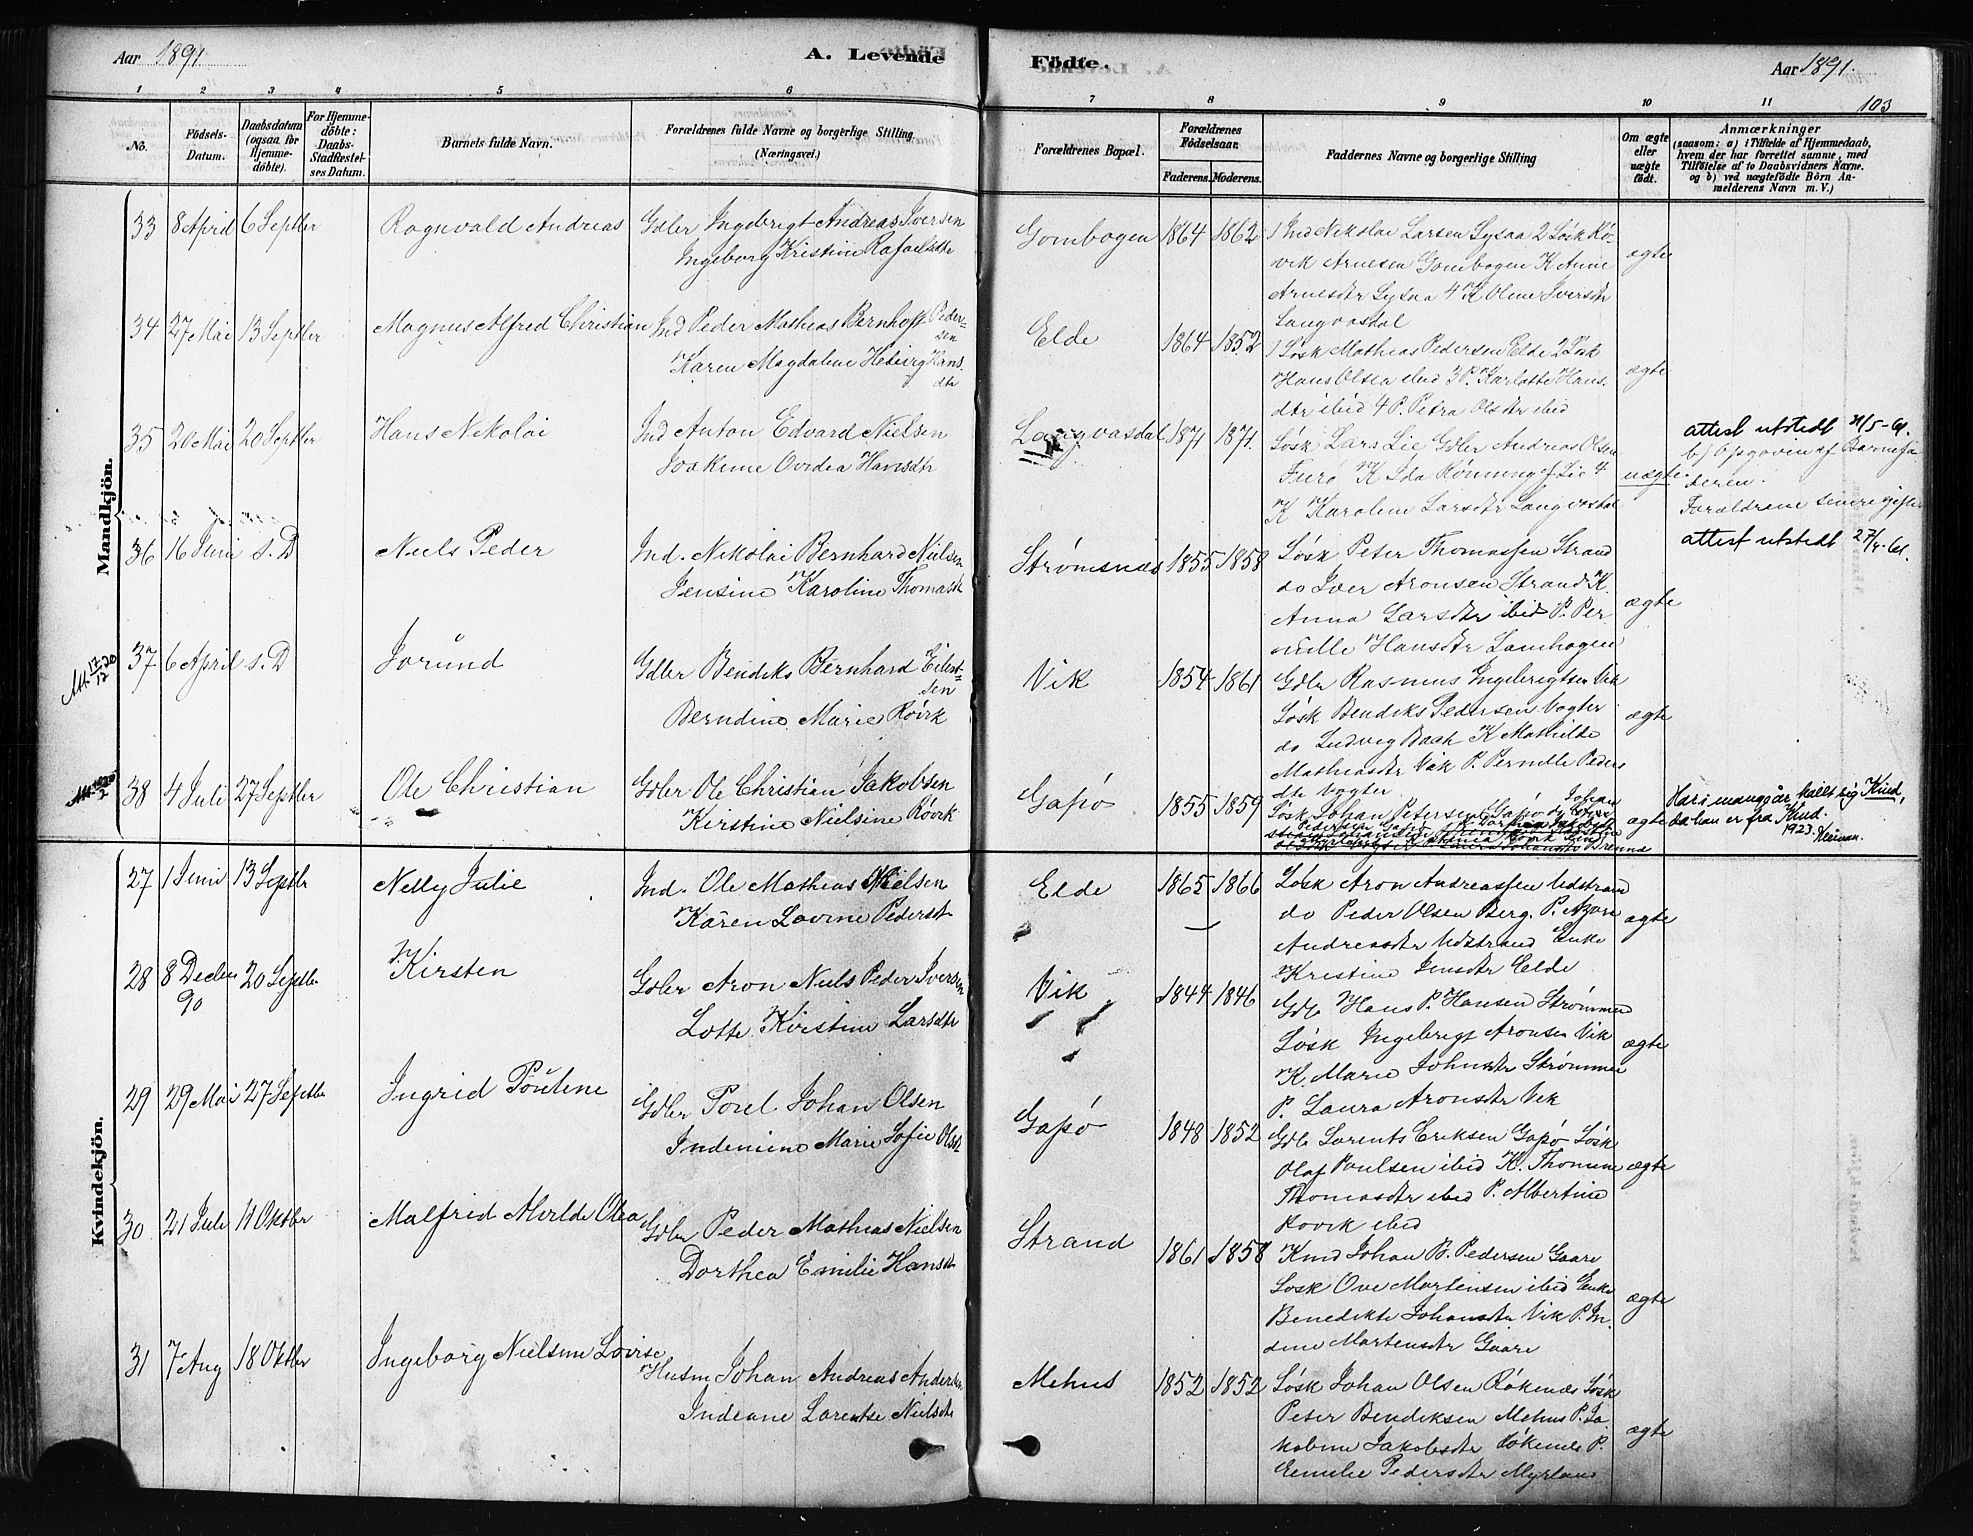 Aar 1891
A. Levende
Födte.
Aar 1891.
103
1 2 3 4 5 6 7 8 9 10 11
No.
Födsels-Datum.
Daabsdatum (ogsaa for Hjemme-döbte).
For Hjemme-döbte: Daabs-Stadfæstel-ses Datum.
Barnets fulde Navn.
Forældrenes fulde Navne og borgerlige Stilling.
(Næringsvei.)
Forældrenes Bopæl.
Forældrenes Födselsaar.
Faderens. Moderens.
Faddernes Navne og borgerlige Stilling
Om ægte eller uægte födt.
Anmærkninger
(saasom: a) i Tilfælde af Hjemmedaab,
hvem der har forrettet samme, med
Tilföielse af to Daabsvidners Navne.
og b) ved uægtefödte Börn An-
melderens Navn m. V.)
Mandkjön.
33 8 April 6 Septber Ragnvald Andreas Gdbr Ingebrigt Andreas Iversen
Ingeborg Kristine Rafaelsdtr
Gombogen 1864 1862 1 Ind Nikolai Larsen Lysaa 2 Løsk Rø-
vik Arnesen Gombogen K Anne
Arnesdtr Lysaa 4 K Oline Iversdtr
Langvasdal
ægte
34 27 Mai 13 Septber Magnus Alfred Christian Ind Peder Mathias Bernhoft Peder-
sen
Karen Magdalene Hans
dtr
Elde 1864 1852 1 Løsk Mathias Pedersen Elde 2 Løsk
Hans Olsen ibid 3 P. Karlotte Hans-
dtr ibid 4 P. Petra Olsdtr ibid
ægte
35 20 Mai 20 Septber Hans Nikolai Ind Anton Edvard Nielsen
Joakime Ovidea Hansdtr
Langvasdal 1871 1871. Løsk Lars Lie Gdbr Andreas Olsen
Furø K Ida Rønning Lie 4
K Karoline Larsdtr Langvasdal
uægte
attest utstedt 31/5-61.
b) Opgaven af Barnefa
deren.
Forældrene senere gifte
36 16 Juni s. D Niels Peder Ind. Nikolai Bernhard Nielsen
Jensine Karoline Thomasdtr
Strømsnæs 1855 1858 Løsk Peter Thomassen Strand
do Iver Aronsen Strand K.
Anna Larsdtr ibid P. Per-
nille Hansdtr Lamhagen
ægte
attest utstedt 27/4-61.
Att. 17/12 20
37 6 April s. D Jorund Gdbr Bendiks Bernhard Eilert-
sen
Berndine Marie Røvik
Vik 1854 1861 Gdbr Rasmus Ingebrigtsen Vik
Løsk Bendiks Pedersen Vogter
do Ludvig Bach K Mathilde
Mathiasdtr Vik P. Pernille Peders
dtr Vogter
ægte
38 4 Juli 27 Septber Ole Christian Gdbr Ole Christian Jakobsen
Kirstine Nielsine Røvik
Gapø 1855 1859 Løsk Johan Petersen Gapø do Johan
ægte
Har i mange år kalt sig Kind,
da han er fra Kind.
1923.
Kvindekjön.
27 1 Juni 13 Septbr Nelly Julie Ind. Ole Mathias Nielsen
Karen Lovine Pedersdtr
Elde 1865 1866 Løsk Aron Andreassen Udstrand
do Peder Olsen Berg. P. Azora
Andreasdtr Udstrand Enke
Kristine Jensdtr Elde
ægte
28 8 Decbr 20 Septbr Kirsten Gdbr Aron Niels Peder Iversen
90
Lotte Kirstine Larsdtr
Vik 1844 1846 Gdb Hans P. Hansen Strømmen
Løsk Ingebrigt Aronsen Vik
K. Marie Johnsdtr Strømmen
P. Laura Aronsdtr Vik
ægte
29 29 Mai 27 Septbr Ingrid Pouline Gdbr Povel Johan Olsen
Indemine Marie Sofie Olsdtr
Gapø 1848 1852 Gdb Lorents Eriksen Gapø Løsk
Olaf Paulsen ibid K. Thomine
Thomasdtr ibid P. Albertine
Rovik ibid
ægte
30 21 Juli 11 Oktbr Malfrid Alvilde Olea Gdbr Peder Mathias Nielsen
Dorthea Emilie Hansdtr
Strand 1861 1858 Kmd Johan B. Pedersen Gaare
Løsk Ove Martensen ibid Enke
Benedikte Johansdtr Vik P. In-
dine Martensdtr Gaare
ægte
31 7 Aug 18 Oktbr Ingeborg Nielsine Lovise Husm Johan Andreas Andersen
Indeane Lorentse Nielsdtr
Mehus 1852 1852 Løsk Johan Olsen Røkenæs Løsk
Peter Bendiksen Mehus P. Ja-
kobine Jakobsdtr Røkenes P.
Emelie Pedersdtr Myrland
ægte